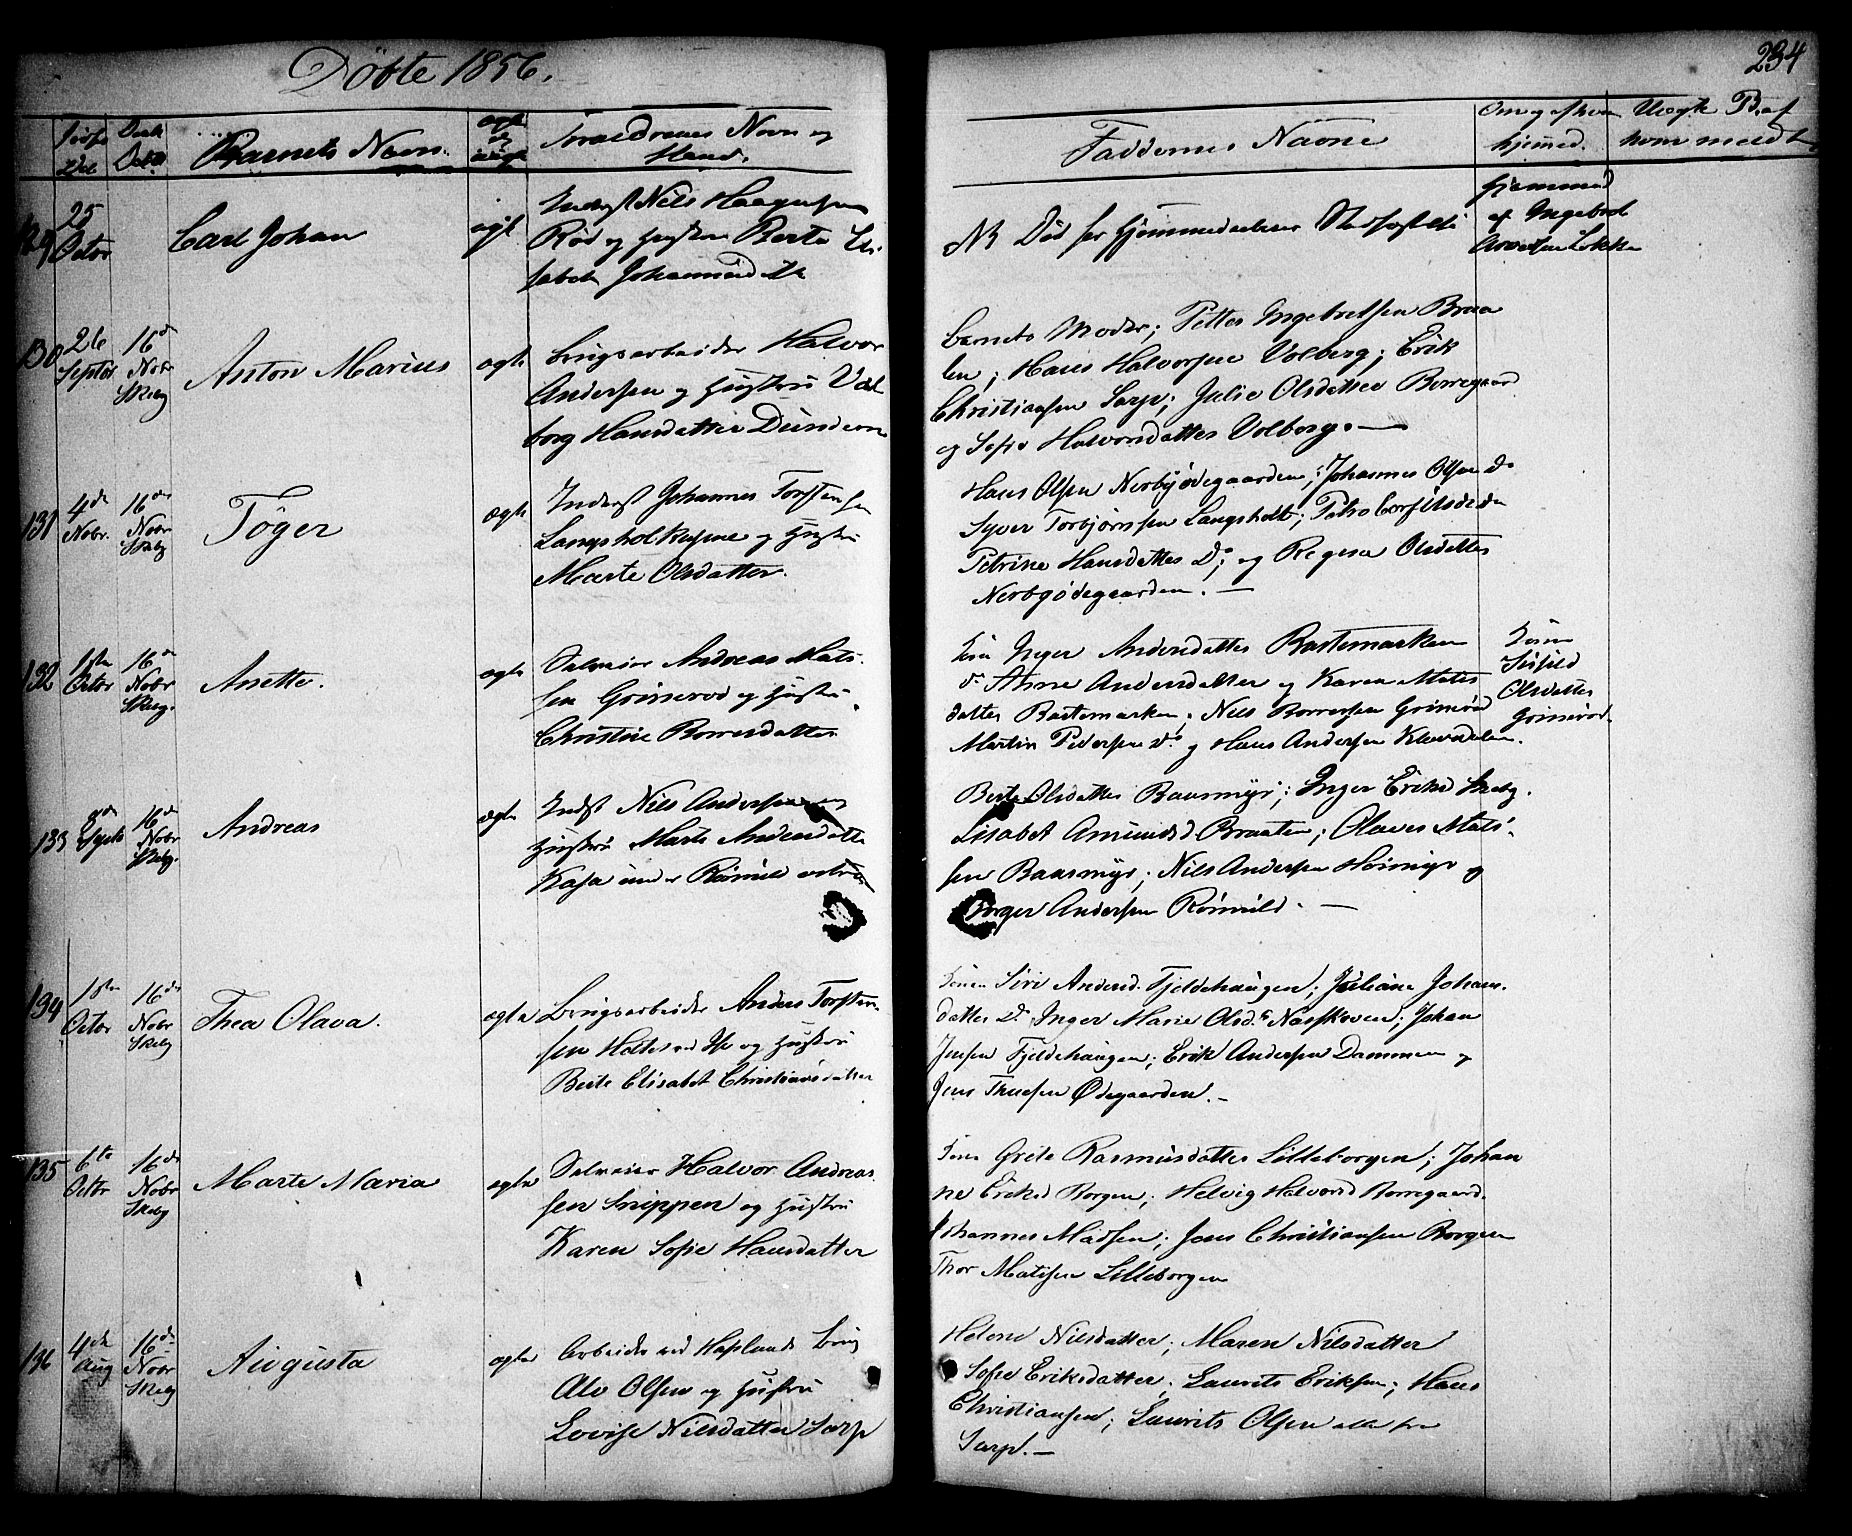 Döbte 1856.
234
Barnets Navn.
Forældrenes Navn og
Stand.
Faddernes Navne
hjemmed.
129
25
Octbr
Carl Johan
ægte
Inderst Nils Haagensen
Röd og Hustru Berte Eli-
sabeth Johannesd
NB Död för Hjemmedaabens Stadfæstelse
hjemmed
af Ingebret
Arvesen Lökke
130
26
Septbr
16d
Nobr
Skeby
Anton Marius
ægte
Brugsarbeider Halvor
Andersen og Hustru Val-
borg Hansdatter Dunderen
Barnets Moder; Petter Ingebretsen Braa
len; Hans Halvorsen Volberg; Erik
Christiansen Sarp; Julie Olsdatter Borregaard
og Sofie Halvorsdatter Volberg. —
131
4de
Nobr.
16de
Nobr
Skeby
Töger
ægte
Inderst Johannes Torsten-
sen
Langsholt og Hustru
Marte Olsdatter.
Hans Olsen Nerbyödegaarden; Johannes Olsen do
Syver Torbjörnsen Langsholt;
Petrine Hansdatter Do; og Regina Olsdatter
Nerbyödegaarden. —
132
1ste
Octbr
16de
Nobr
Skeby.
Anette.
ægte
Selveier Andreas Mats-
sen Grimeröd og Hustru
Christine Borresdatter
Inger Andersdatter Rastemarken
do Anne Andersdatter og Karen Mats
datter Rastemarken; Nils Borresen Grimeröd
Martin Pedersen do og Hans Andersen Klavedalen.
Olsdatter
Grimeröd
133
8de
Septb
16de
Nobr
Skeby.
Andreas
ægte
Indst Nils Andersen og
Hustru Marte Andersdatter
Kasa under Römuld
Berte Olsdatter Baasmyr; Inger Eriksd Skeby.
Lisabet Amundsd Braaten; Olaves Mats-
sen Baasmyr; Nils Andersen Heimyr og
Inger Andersen Römuld. —
134
1ste
Octbr
16de
Nobr
Skeby
Thea Olava.
ægte
Brugsarbeider Anders Torsten-
sen Holter og Hustru
Berte Elisabet Christiansdatter
Siri Andersd. Fjeldshaugen; Juliane Johans-
datter do Inger Marie Olsd. Næsskoven; Johan
Jensen Fjeldshaugen; Erik Andersen Dammen og
Jens Thuesen Ödegaarden. —
135
6te
Octbr
16de
Nobr
Skeby
Marte Maria
ægte
Selveier Halvor Andreas
sen Snippen og Hustru
Karen Sofie Hansdatter
Grete Rasmusdatter Lilleborgen; Johan
ne Eriksd Borgen; Helvig Halvorsd Borregaard.
Johannes Madsen; Jens Christiansen Borgen
Thor Matisen Lilleborgen
136
4de
Aug
16de
Nobr
Skeby
Augusta
ægte
Arbeider ved Haflunds Brug
Alv Olsen og Hustru
Lovise Nilsdatter Sarp
Helene Nilsdatter; Maren Nilsdatter
Sofie Eriksdatter; Laurits Eriksen; Hans
Christiansen; Laurits Olsen alle fra
Sarp. —